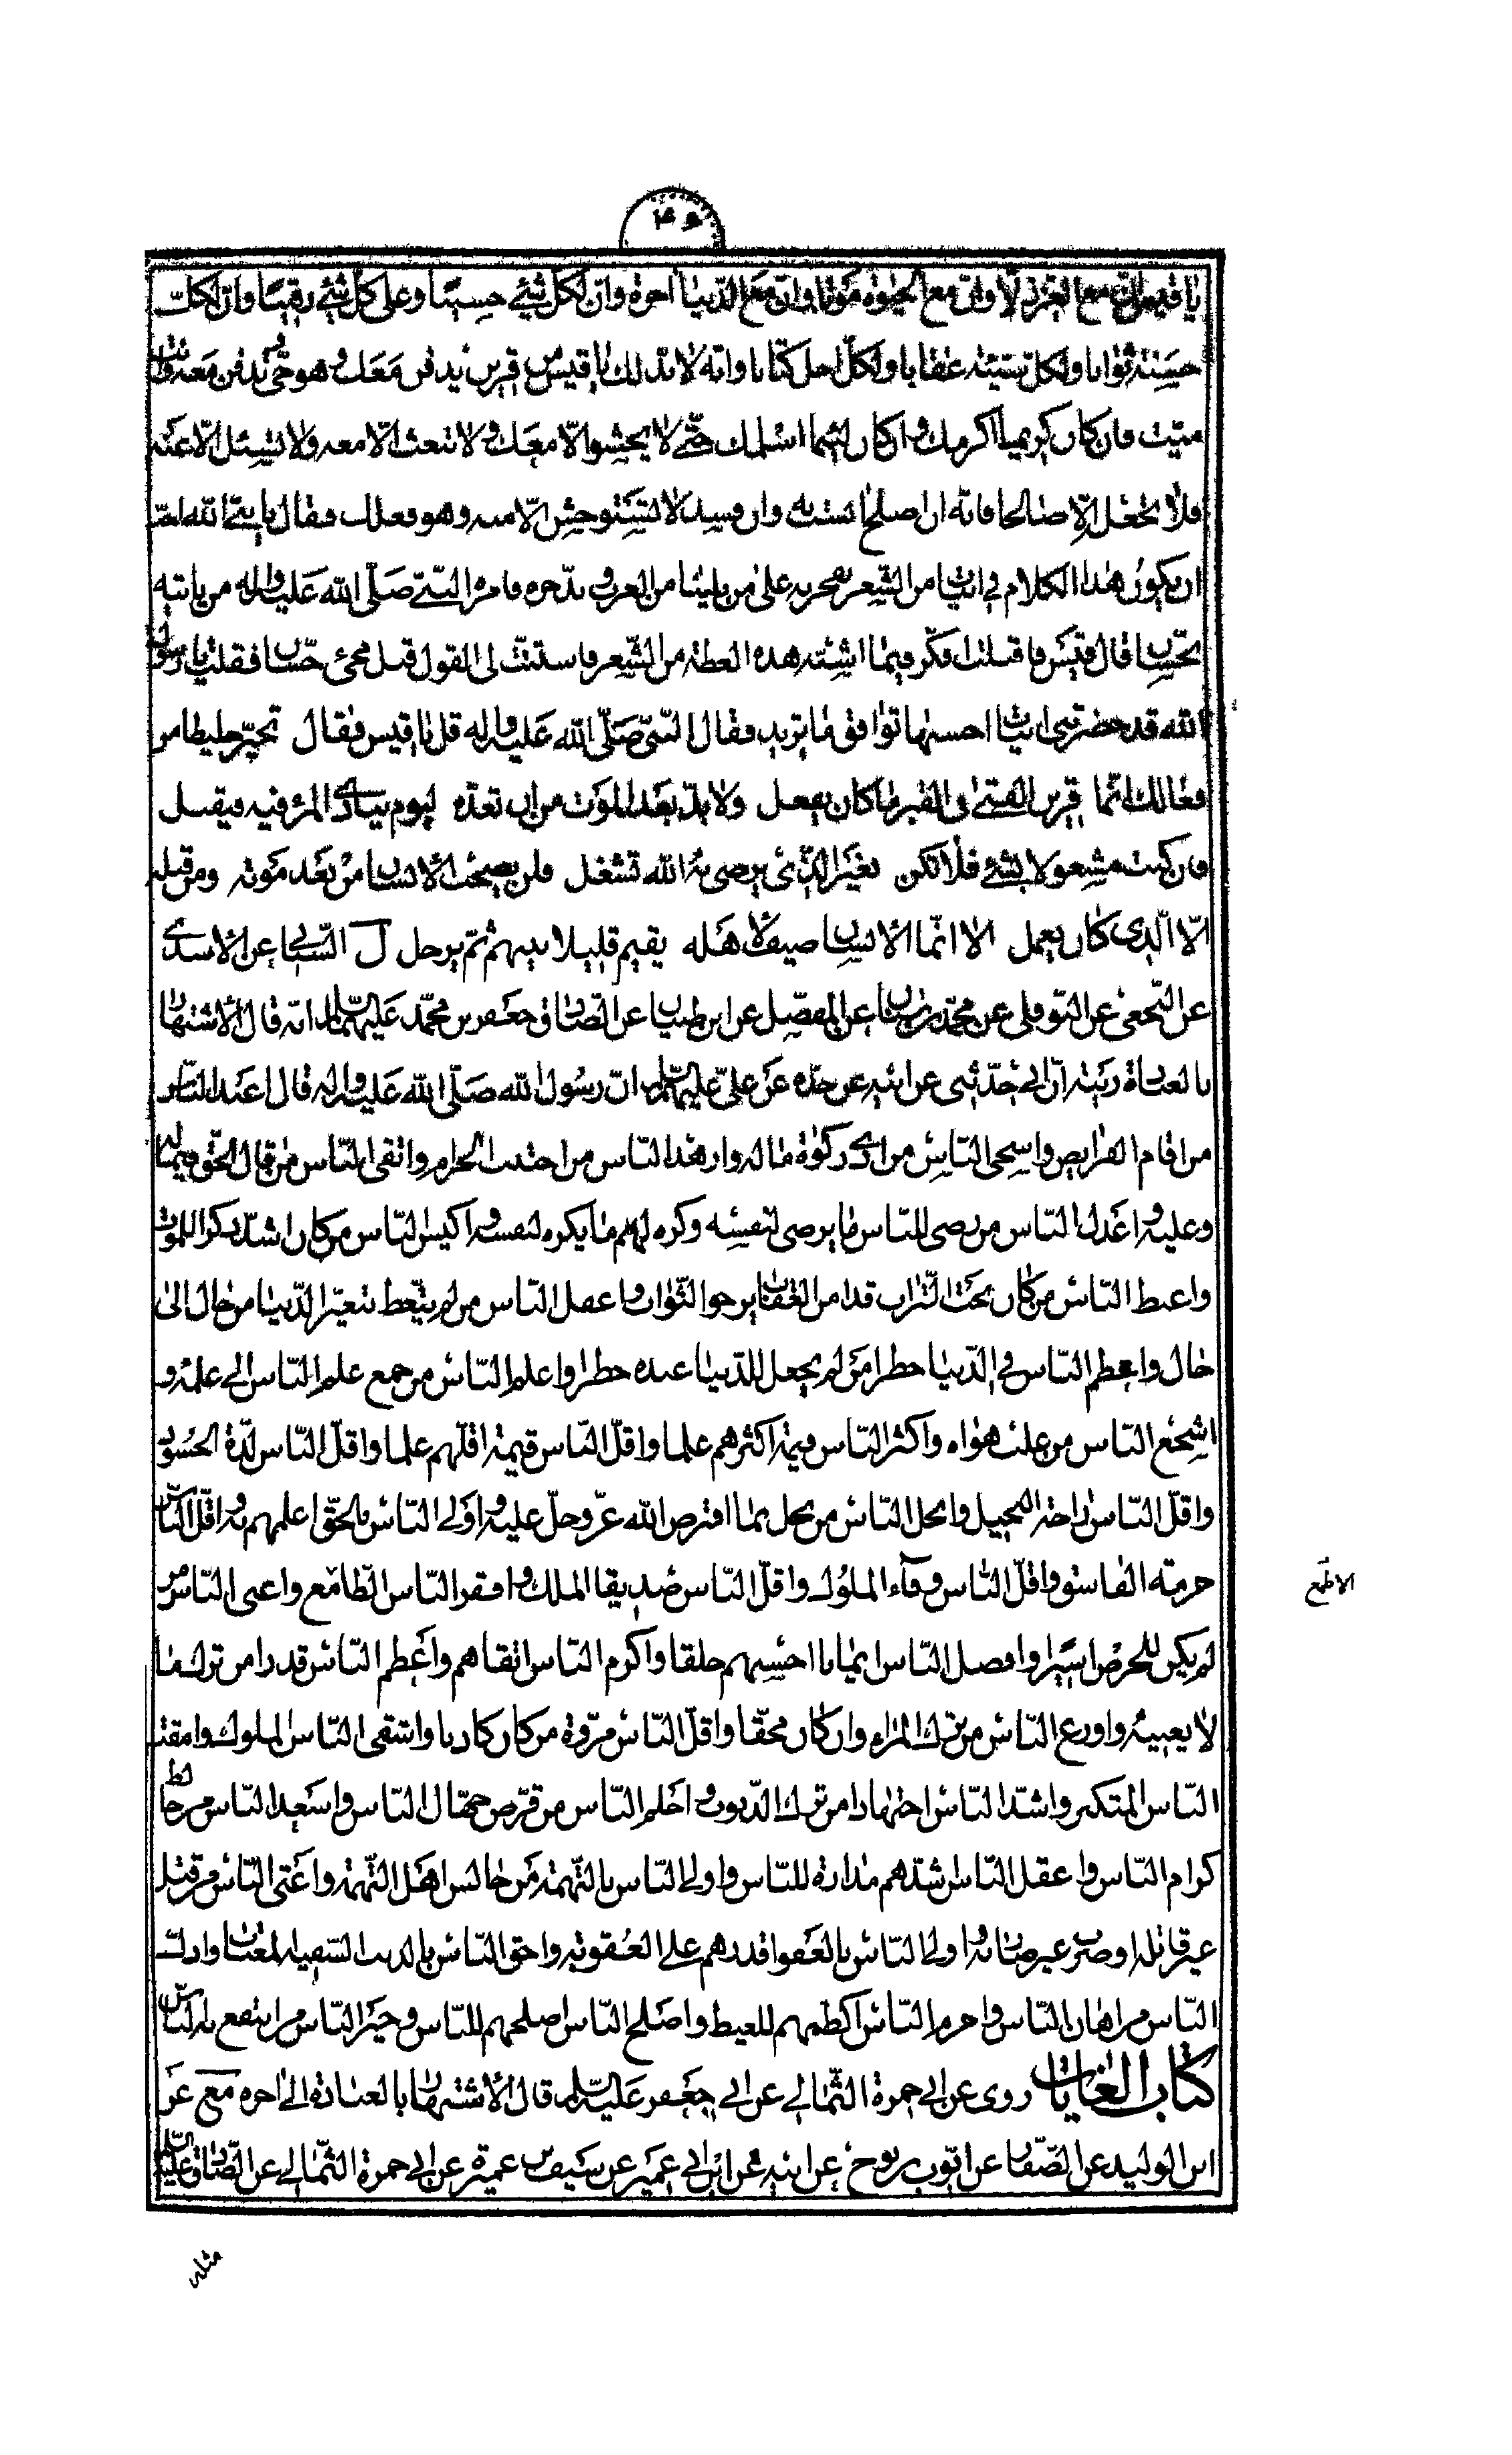 يا قيس ان مع العز ذلا وان مع الحيوة موتا وان مع الدنيا اخرة وان لكل شئ حسيبا وعلى كل شئ رقيبا وان لكل
حسنة ثوابا ولكل سيئة عقابا ولكل اجل كتابا وانه لا بد لك يا قيس من قرين يدفن معك وهو حي وتدفن معه وانت
ميت فان كان كريما اكرمك وان كان لئيما اسلمك حتى لا يحشر الا معك ولا تبعث الا معه ولا تسئل الا عنه
فلا تجعله الا صالحا فانه ان صلح انست به وان فسد لا تستوحش الا منه وهو فعلك فقال يا نبي الله احب
ان يكون هذا الكلام في ابيات من الشعر نفخر به على من يلينا من العرب وندخره فامر النبي صلى الله عليه واله من ياتيه
بحسان قال قيس فاقبلت افكر فيما اشبه هذه العظة من الشعر فاستتب لى القول قبل مجئ حسان فقلت يا رسول
الله قد حضرتني ابيات احسبها توافق ما تريد فقال النبي صلى الله عليه واله قل يا قيس فقال تخير خليطا من
فعالك انما قرين الفتى في القبر ما كان يفعل ولا بد بعد الموت من ان تعده ليوم ينادى المرء فيه فيقبل
فان كنت مشغولا بشئ فلا تكن بغير الذي يرضى به الله تشغل فلن يصحب الانسان من بعد موته ومن قبله
الا الذي كان يعمل الا انما الانسان ضيف لاهله يقيم قليلا بينهم ثم يرحل ل السناني عن الاسدي
عن النخعي عن النوفلي عن محمد بن سنان عن المفضل عن ابن ظبيان عن الصادق جعفر بن محمد عليهما السلام انه قال الاشتهار
بالعبادة ريبة ان ابي حدثني عن ابيه عن جده عن علي عليهم السلام ان رسول الله صلى الله عليه واله قال اعبد الناس
من اقام الفرايض واسخى الناس من ادى زكوة ماله وازهد الناس من اجتنب الحرام واتقى الناس من قال الحق فيما له
وعليه واعدل الناس من رضى للناس ما يرضى لنفسه وكره لهم ما يكره لنفسه واكيس الناس من كان اشد ذكرا للموت
واغبط الناس من كان تحت التراب قد امن العقاب يرجو الثواب واغفل الناس من لم يتعظ بتغير الدنيا من حال الى
حال واعظم الناس في الدنيا خطرا من لم يجعل للدنيا عنده خطرا واعلم الناس من جمع علم الناس الى علمه و
اشجع الناس من غلب هواه واكثر الناس قيمة اكثرهم علما واقل الناس قيمة اقلهم علما واقل الناس لذة الحسود
واقل الناس راحة البخيل وابخل الناس من بخل بما افترض الله عز وجل عليه واولى الناس بالحق اعلمهم به واقل الناس
حرمة الفاسق واقل الناس وفاء الملوك واقل الناس صديقا الملك وافقر الناس الطامع واغنى الناس من
لم يكن للحرص اسيرا وافضل الناس ايمانا احسنهم خلقا واكرم الناس اتقاهم واعظم الناس قدرا من ترك ما
لا يعنيه واورع الناس من ترك المراء وان كان محقا واقل الناس مروة من كان كاذبا واشقى الناس الملوك وامقت
الناس المتكبر واشد الناس اجتهادا من ترك الذنوب واحلم الناس من فر من جهال الناس واسعد الناس من خالط
كرام الناس واعقل الناس اشدهم مداراة للناس واولى الناس بالتهمة من جالس اهل التهمة واعتى الناس من قتل
غير قاتله او ضرب غير ضاربه واولى الناس بالعفو اقدرهم على العقوبة واحق الناس بالذنب السفيه المغتاب واذل
الناس من اهان الناس واحزم الناس اكظمهم للغيظ واصلح الناس اصلحهم للناس وخير الناس من انتفع به الناس
كتاب الغايات روى عن ابي حمزة الثمالي عن ابي جعفر عليه السلام قال الاشتهار بالعبادة الى اخره مع عن
ابن الوليد عن الصفار عن ايوب بن نوح عن ابن ابي عمير عن سيف بن عميرة عن ابي حمزة الثمالي عن الصادق عليه السلام
مثله